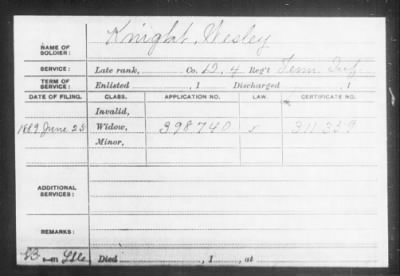 NAME OF SOLDIER: Knight, Wesley
SERVICE: Late rank, Co. D, 4 Reg't Tenn. Inf
TERM OF SERVICE: Enlisted , 1 Discharged , 1
DATE OF FILING. CLASS. APPLICATION NO. LAW. CERTIFICATE NO.
Invalid,
1889 June 25 Widow, 398740 r 311359
Minor,
ADDITIONAL SERVICES:
REMARKS:
Died , 1 , at